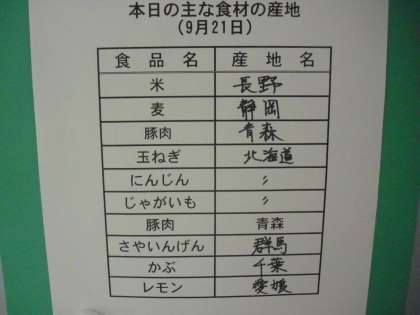 本日の主な食材の産地
(9月21日)
食品名 産地名
米 長野
麦 静岡
豚肉 青森
玉ねぎ 北海道
にんじん 〃
じゃがいも 〃
豚肉 青森
さやいんげん 群馬
かぶ 千葉
レモン 愛媛